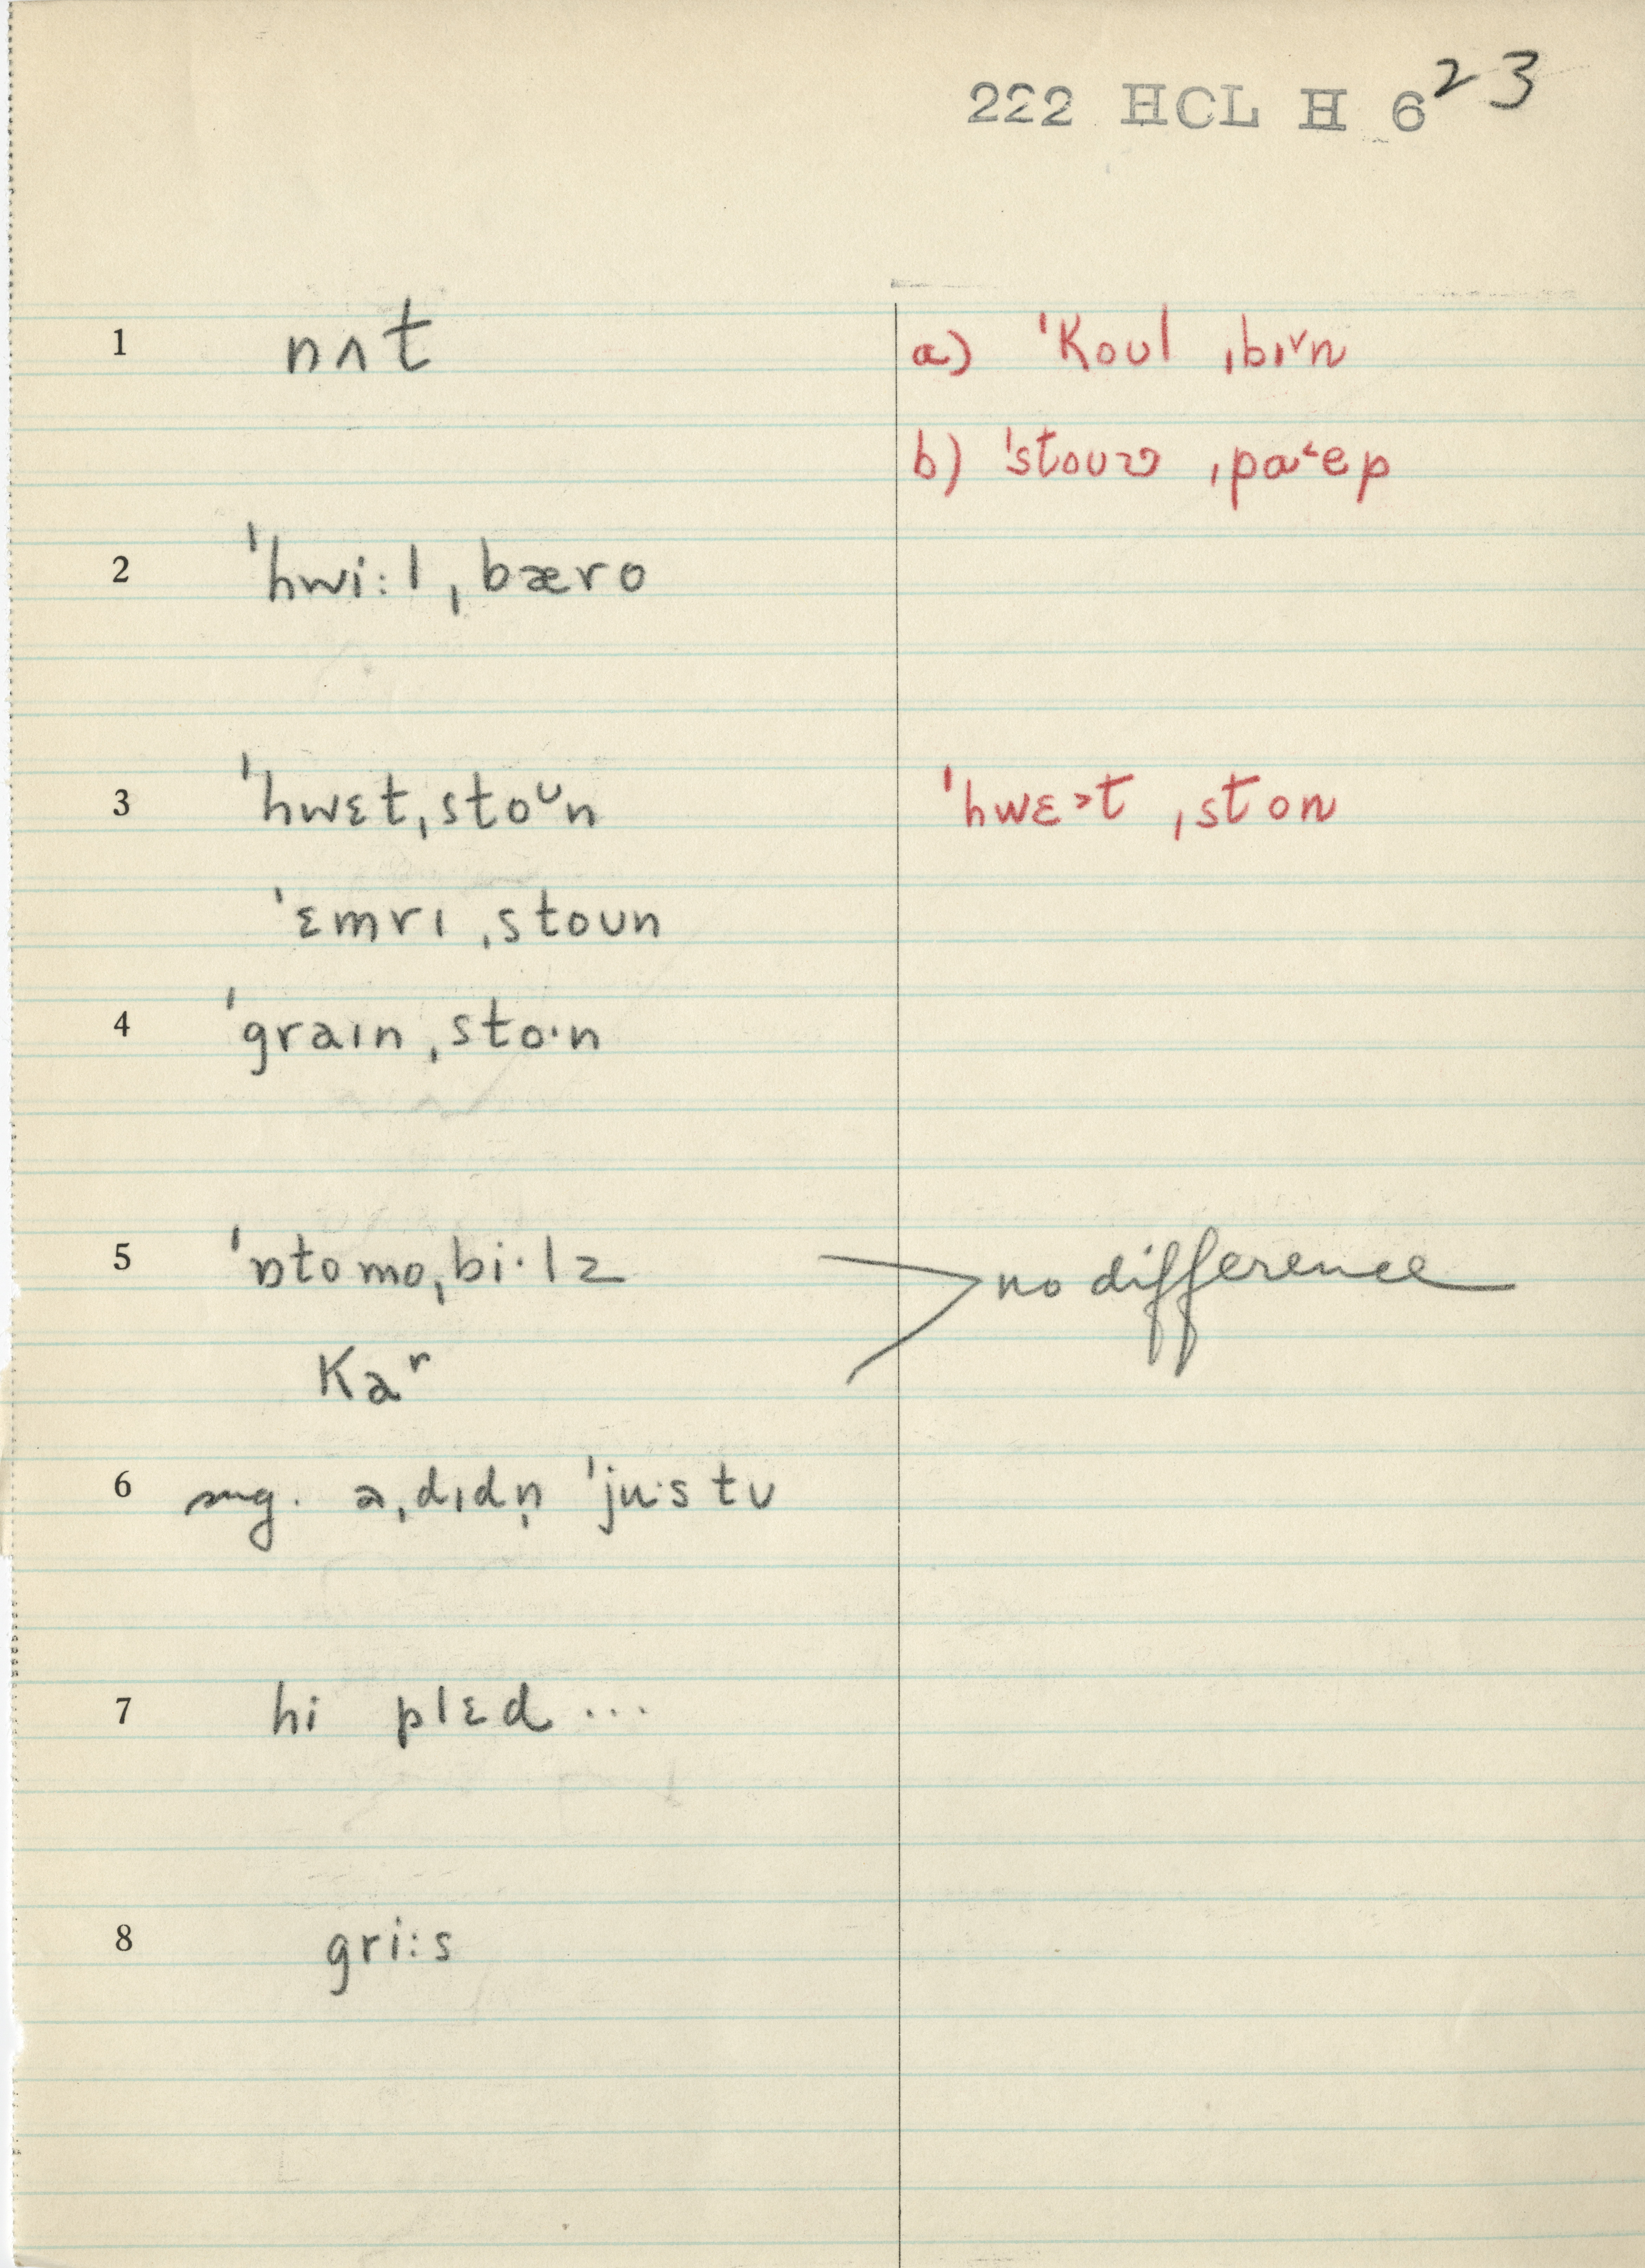 222 HCL H 6 23
1 nʌt a) ˈkoʊl ˌbɪ˅n
b) ˈstouv ˌpa˂ep
2 ˈhwi:l ˌbæro
3 ˈhwɛt ˌstoᶷn ˈhwɛ˃t ˌston
ˈɛmrɪ ˌstoʊn
4 ˈgraɪn ˌsto·n
5 ˈɒtomoˌbi·lz no difference
kaʳ
6 sug. aˌdɪdn̩ ˈju·s tʊ
7 hi plɛd ...
8 gri:s